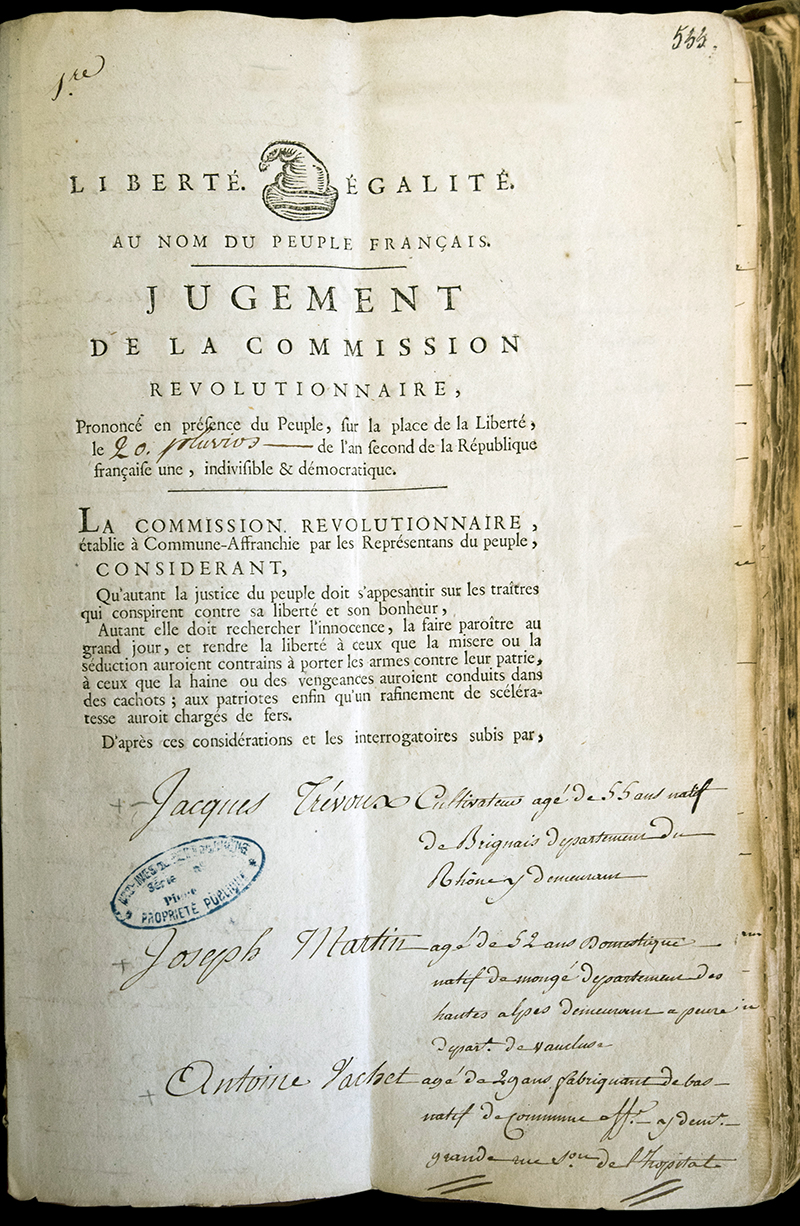 1.re
544.
LIBERTÉ. ÉGALITÉ.
AU NOM DU PEUPLE FRANÇAIS.
JUGEMENT
DE LA COMMISSION
REVOLUTIONNAIRE,
Prononcé en préſence du Peuple, ſur la place de la Liberté,
le 20. pluvios de l'an ſecond de la République
françaiſe une, indiviſible & démocratique.
LA COMMISSION REVOLUTIONNAIRE,
établie à Commune-Affranchie par les Représentans du peuple,
CONSIDERANT,
Qu'autant la justice du peuple doit s'appesantir sur les traîtres
qui conspirent contre sa liberté et son bonheur,
Autant elle doit rechercher l'innocence, la faire paroître au
grand jour, et rendre la liberté à ceux que la misere ou la
séduction auroient contrains à porter les armes contre leur patrie,
à ceux que la haine ou des vengeances auroient conduits dans
des cachots; aux patriotes enfin qu'un rafinement de scéléra-
tesse auroit chargés de fers.
D'après ces considérations et les interrogatoires subis par,
Jacques Trévoux Cultivateur agé de 55 ans natif
de Brignais departement du
Rhône y demeurant
PROPRIÉTÉ PUBLIQUE
Joseph Martin agé de 52 ans Domestique
natif de mongé departement des
hautes alpes demeurant a
depart.t de vaucluse
Antoine Vachet agé de 29 ans fabriquant de bas
natif de commune aff.e y dem.t
grande rue de l'hopital